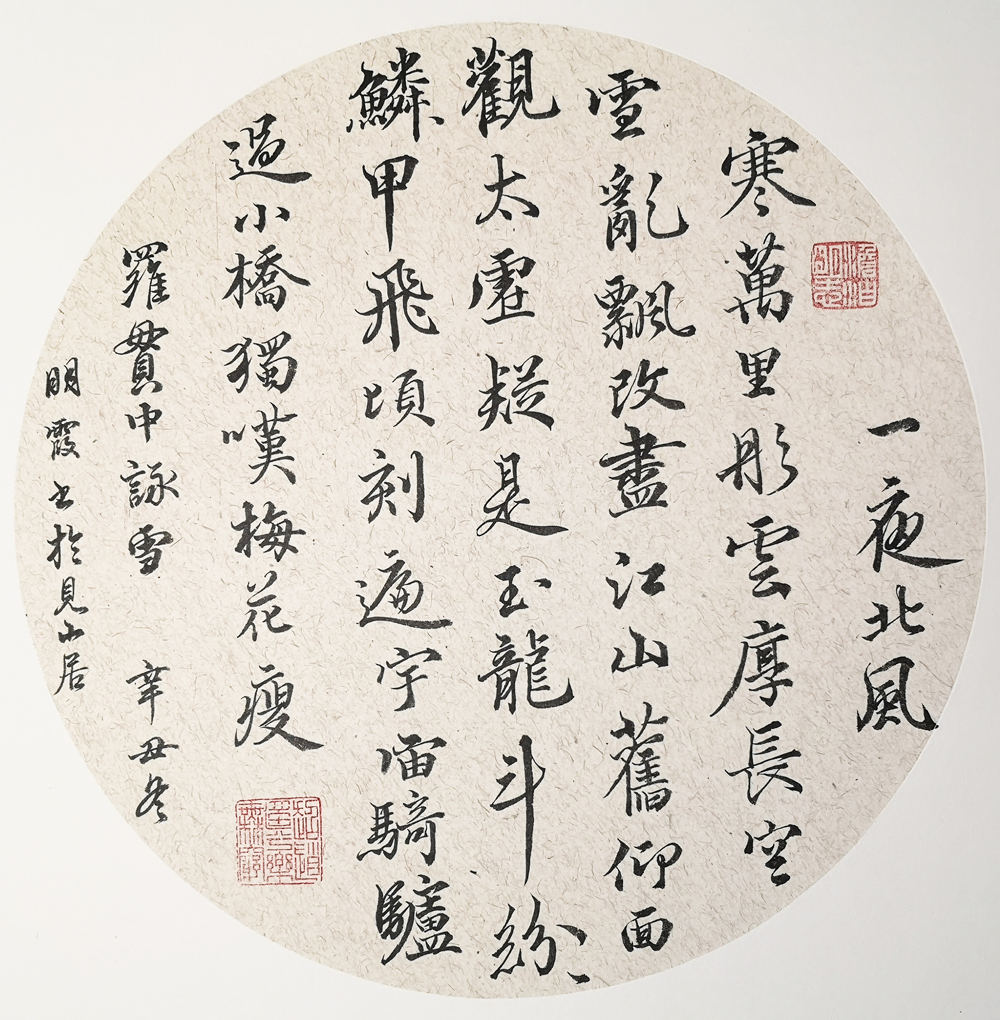 澹泊明志
一夜北風
寒萬里彤雲厚長空
雪亂飄改盡江山舊仰面
觀太虛疑是玉龍斗紛〻
鱗甲飛頃刻遍宇宙騎驢
過小橋獨嘆梅花瘦
羅貫中詠雪 辛丑冬
明霞书於見山居